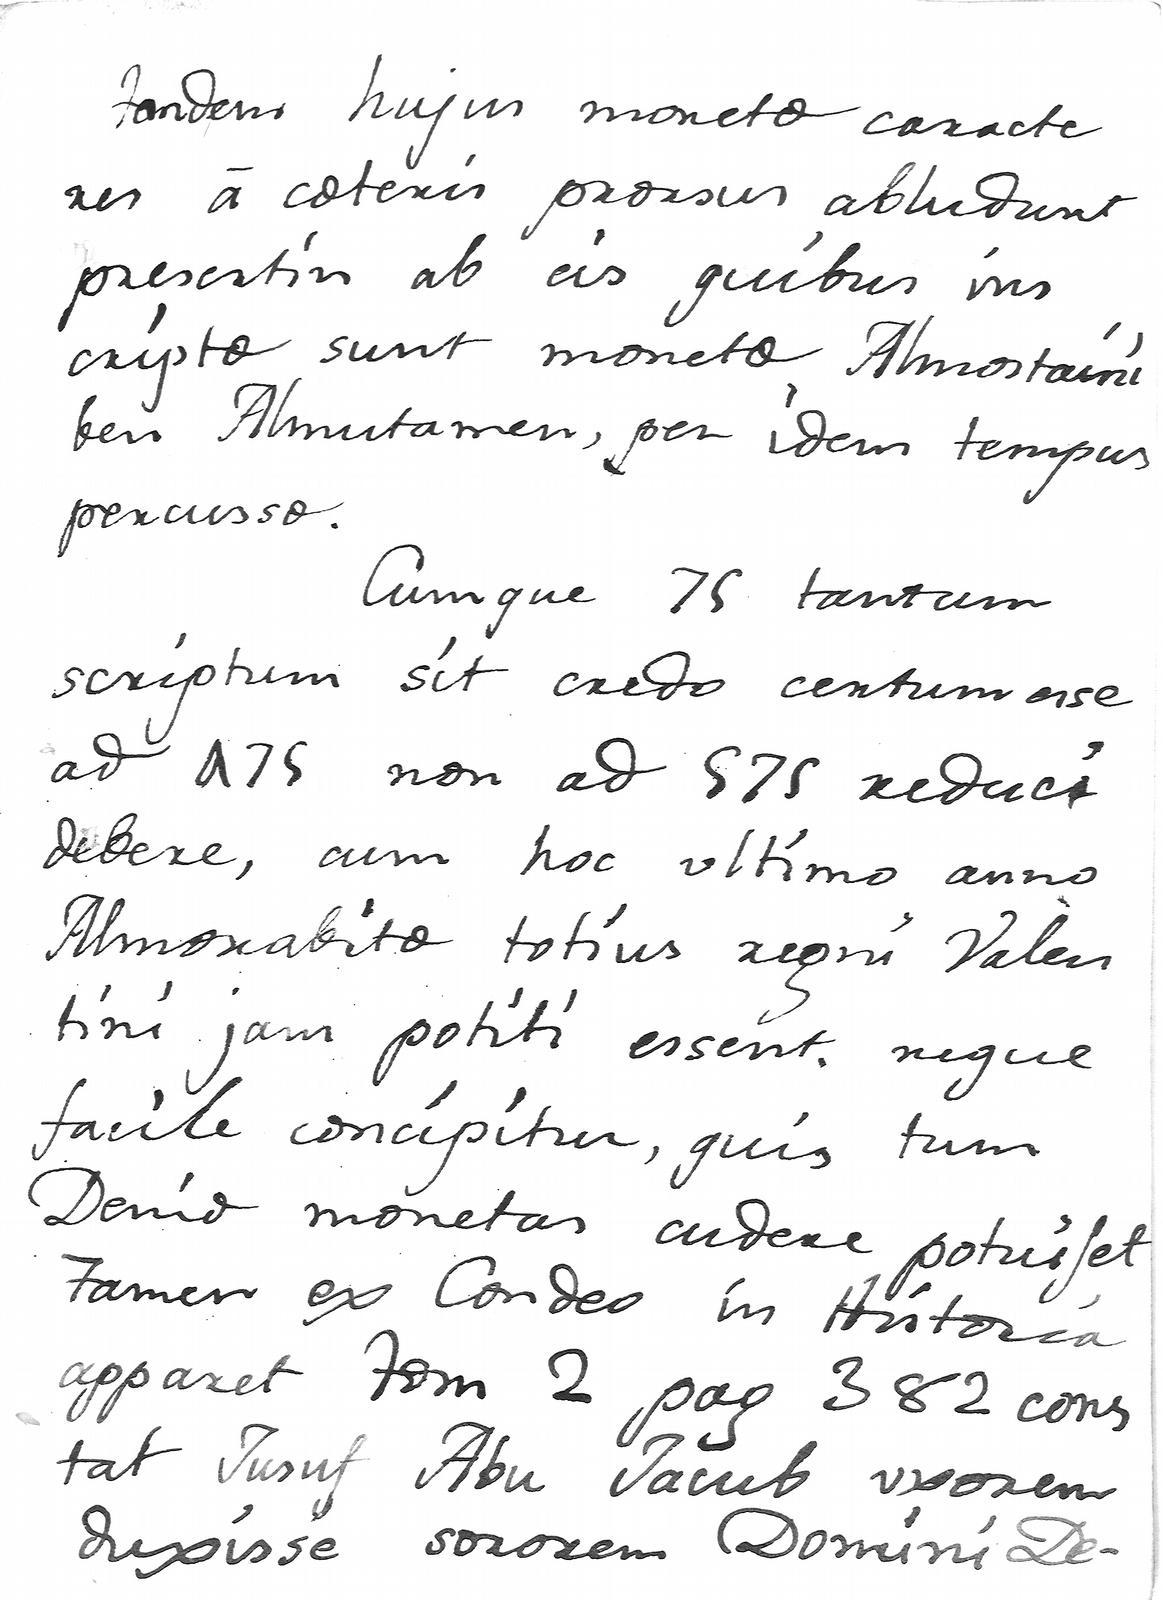 tandem hujus monetæ caracte
res ā cæteris prorsus abludunt
presertin ab eis quibus ins
criptæ sunt monetæ Almostaini
ben Almutamen, per idem tempus
percussæ.
Cumque 75 tantum
scriptum sit credo centum esse
ad 175 non ad 575 reduci
debere, cum hoc ultimo anno
Almorabitæ totius regni Valen
tini jam potiti essent. neque
facile concipitur, quis tum
Deniæ monetas cudere potuisset
Tamen ex Condeo in Historia
apparet Tom 2 pag 382 cons
tat Jusuf Abu Jacub uxorem
duxisse sororem Domini De-